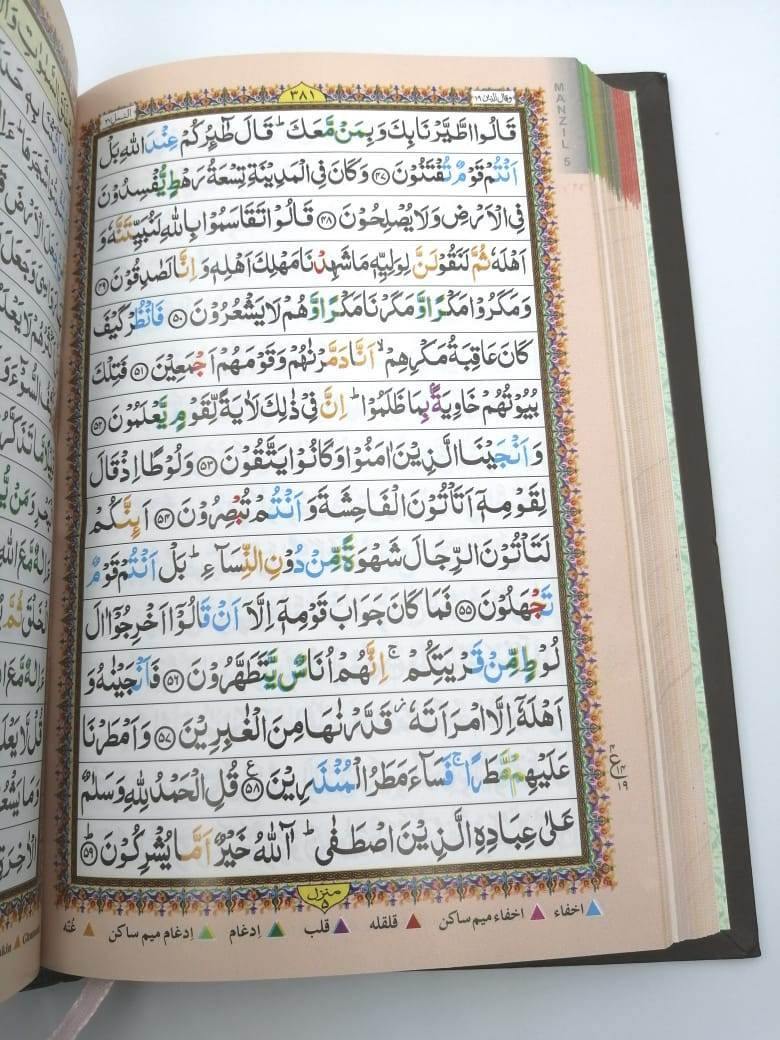 وقال الذين ١٩
٣٨١
النمل ٢٧
MANZIL 5
قَالُوا اطَّيَّرْنَا بِكَ وَبِمَنْ مَّعَكَ ؕ قَالَ طٰٓئِرُكُمْ عِنْدَ اللّٰهِ بَلْ
اَنْتُمْ قَوْمٌ تُفْتَنُوْنَ ﴿۴۷﴾ وَكَانَ فِى الْمَدِيْنَةِ تِسْعَةُ رَهْطٍ يُّفْسِدُوْنَ
فِى الْاَرْضِ وَلَا يُصْلِحُوْنَ ﴿۴۸﴾ قَالُوْا تَقَاسَمُوْا بِاللّٰهِ لَنُبَيِّتَنَّهٗ وَ
اَهْلَهٗ ثُمَّ لَنَقُوْلَنَّ لِوَلِيِّهٖ مَا شَهِدْنَا مَهْلِكَ اَهْلِهٖ وَ اِنَّا لَصٰدِقُوْنَ ﴿۴۹﴾
وَمَكَرُوْا مَكْرًا وَّمَكَرْنَا مَكْرًا وَّهُمْ لَا يَشْعُرُوْنَ ﴿۵۰﴾ فَانْظُرْ كَيْفَ
كَانَ عَاقِبَةُ مَكْرِهِمْ ۙ اَنَّا دَمَّرْنٰهُمْ وَقَوْمَهُمْ اَجْمَعِيْنَ ﴿۵۱﴾ فَتِلْكَ
بُيُوْتُهُمْ خَاوِيَةًۢ بِمَا ظَلَمُوْا ؕ اِنَّ فِىْ ذٰلِكَ لَاٰيَةً لِّقَوْمٍ يَّعْلَمُوْنَ ﴿۵۲﴾
وَ اَنْجَيْنَا الَّذِيْنَ اٰمَنُوْا وَكَانُوْا يَتَّقُوْنَ ﴿۵۳﴾ وَلُوْطًا اِذْ قَالَ
لِقَوْمِهٖٓ اَتَاْتُوْنَ الْفَاحِشَةَ وَ اَنْتُمْ تُبْصِرُوْنَ ﴿۵۴﴾ اَئِنَّكُمْ
لَتَاْتُوْنَ الرِّجَالَ شَهْوَةً مِّنْ دُوْنِ النِّسَآءِ ؕ بَلْ اَنْتُمْ قَوْمٌ
تَجْهَلُوْنَ ﴿۵۵﴾ فَمَا كَانَ جَوَابَ قَوْمِهٖٓ اِلَّآ اَنْ قَالُوْٓا اَخْرِجُوْٓا اٰلَ
لُوْطٍ مِّنْ قَرْيَتِكُمْ ۚ اِنَّهُمْ اُنَاسٌ يَّتَطَهَّرُوْنَ ﴿۵۶﴾ فَاَنْجَيْنٰهُ وَ
اَهْلَهٗٓ اِلَّا امْرَاَتَهٗ ؗ قَدَّرْنٰهَا مِنَ الْغٰبِرِيْنَ ﴿۵۷﴾ وَاَمْطَرْنَا
عَلَيْهِمْ مَّطَرًا ۚ فَسَآءَ مَطَرُ الْمُنْذَرِيْنَ ﴿۵۸﴾ قُلِ الْحَمْدُ لِلّٰهِ وَسَلٰمٌ
عَلٰى عِبَادِهِ الَّذِيْنَ اصْطَفٰى ؕ آٰللّٰهُ خَيْرٌ اَمَّا يُشْرِكُوْنَ ﴿۵۹﴾
ع ١٩
منزل ٥
اخفاء اخفاء میم ساکن قلقله قلب اِدغام اِدغام میم ساکن غُنّه